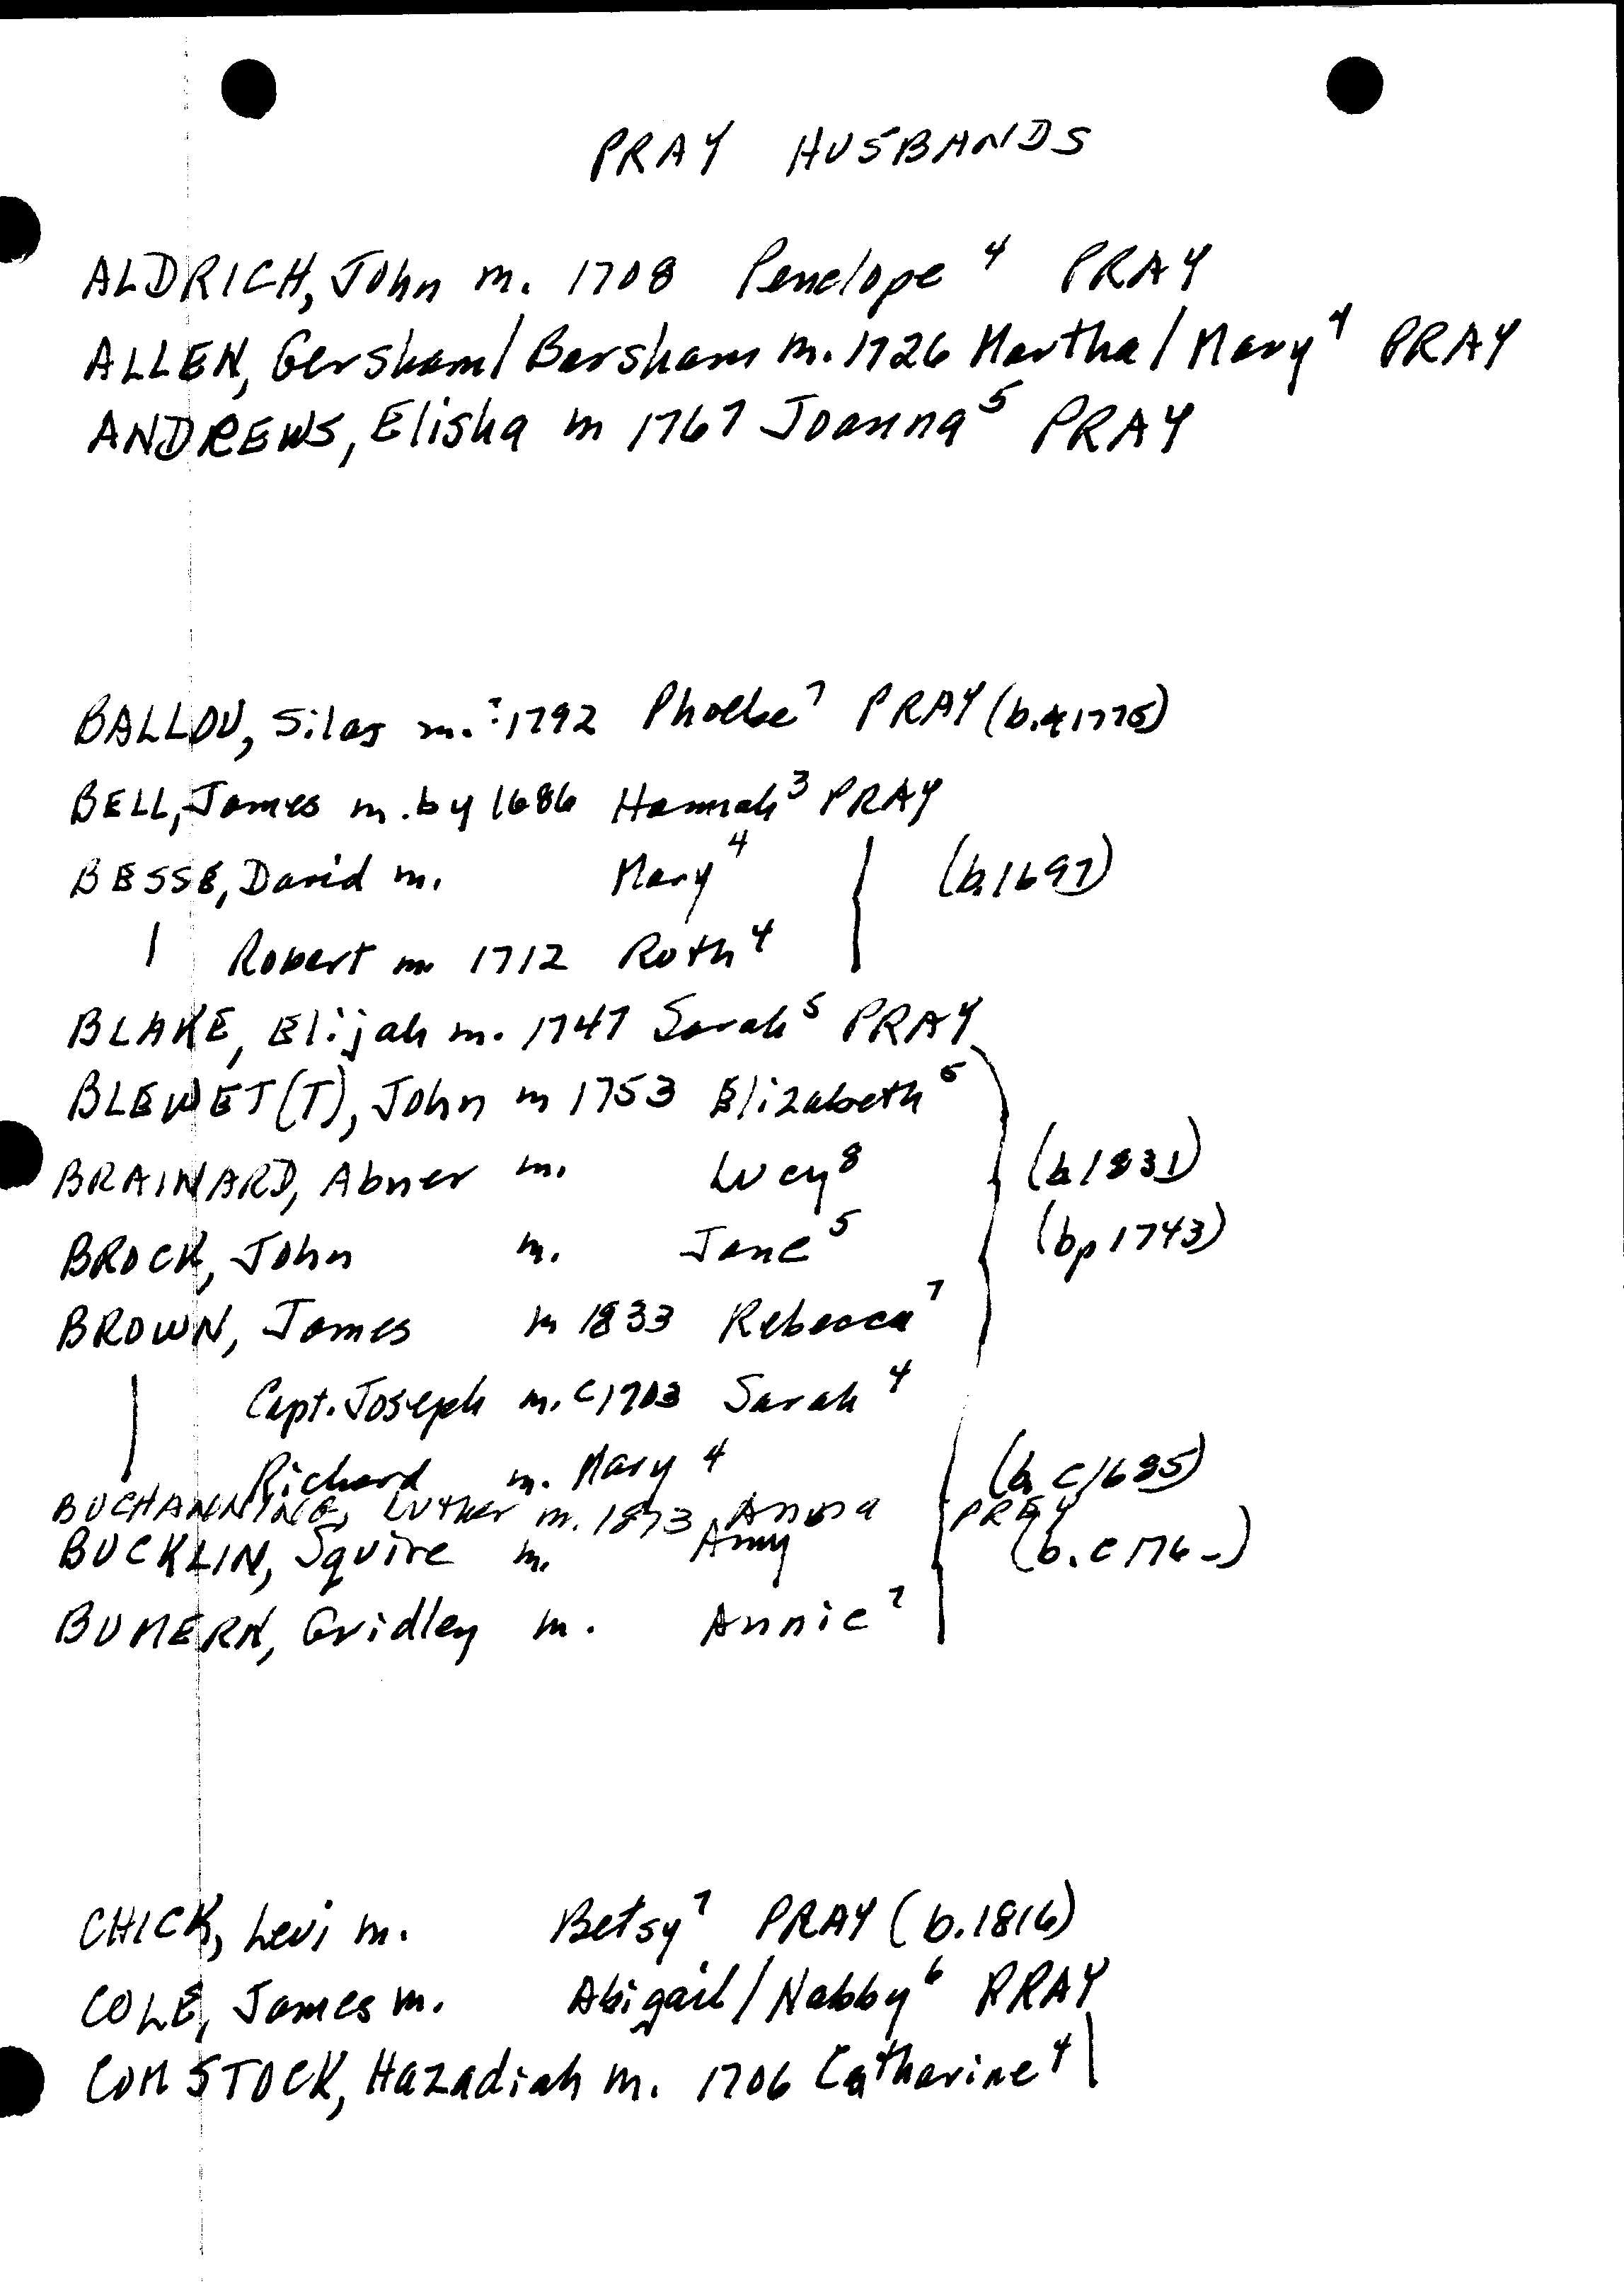 PRAY HUSBANDS
ALDRICH, John m. 1708 Penelope 4 PRAY
ALLEN, Gersham/Barsham m. 1726 Martha/Mary 4 PRAY
ANDREWS, Elisha m 1767 Joanna 5 PRAY
BALLOU, Silas m. 1792 Phoebe 7 PRAY (b. 1775)
BELL, James m. by 1686 Hannah 3 PRAY
BESSE, David m. Mary 4 (b. 1697)
Robert m. 1712 Ruth 4
BLAKE, Elijah m. 1747 Sarah 5 PRAY
BLEWET(T), John m 1753 Elizabeth
BRAINARD, Abner m. Lucy 8 (b 1831)
BROCK, John m. Jane 5 (bp 1743)
BROWN, James m 1833 Rebecca 7
Capt. Joseph m. c1703 Sarah 4
Richard m. Mary 4 (b. c1685)
BUCHANNING, Luther m. 1873 Anna PRAY
BUCKLIN, Squire m. Amy (b. c 176-)
BUMERN, Gridley m. Annie 7
CHICK, Levi m. Betsy 7 PRAY (b. 1816)
COLE, James m. Abigail/Nabby 6 PRAY
COMSTOCK, Hazadiah m. 1706 Catharine 4